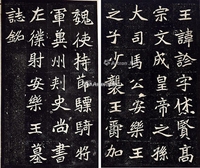 王諱詮字休賢高
宗文成皇帝之孫
大司馬公安樂王
之子少襲王爵加
魏使持節驃騎將
軍冀州刾史尚書
左僕射安樂王墓
誌銘